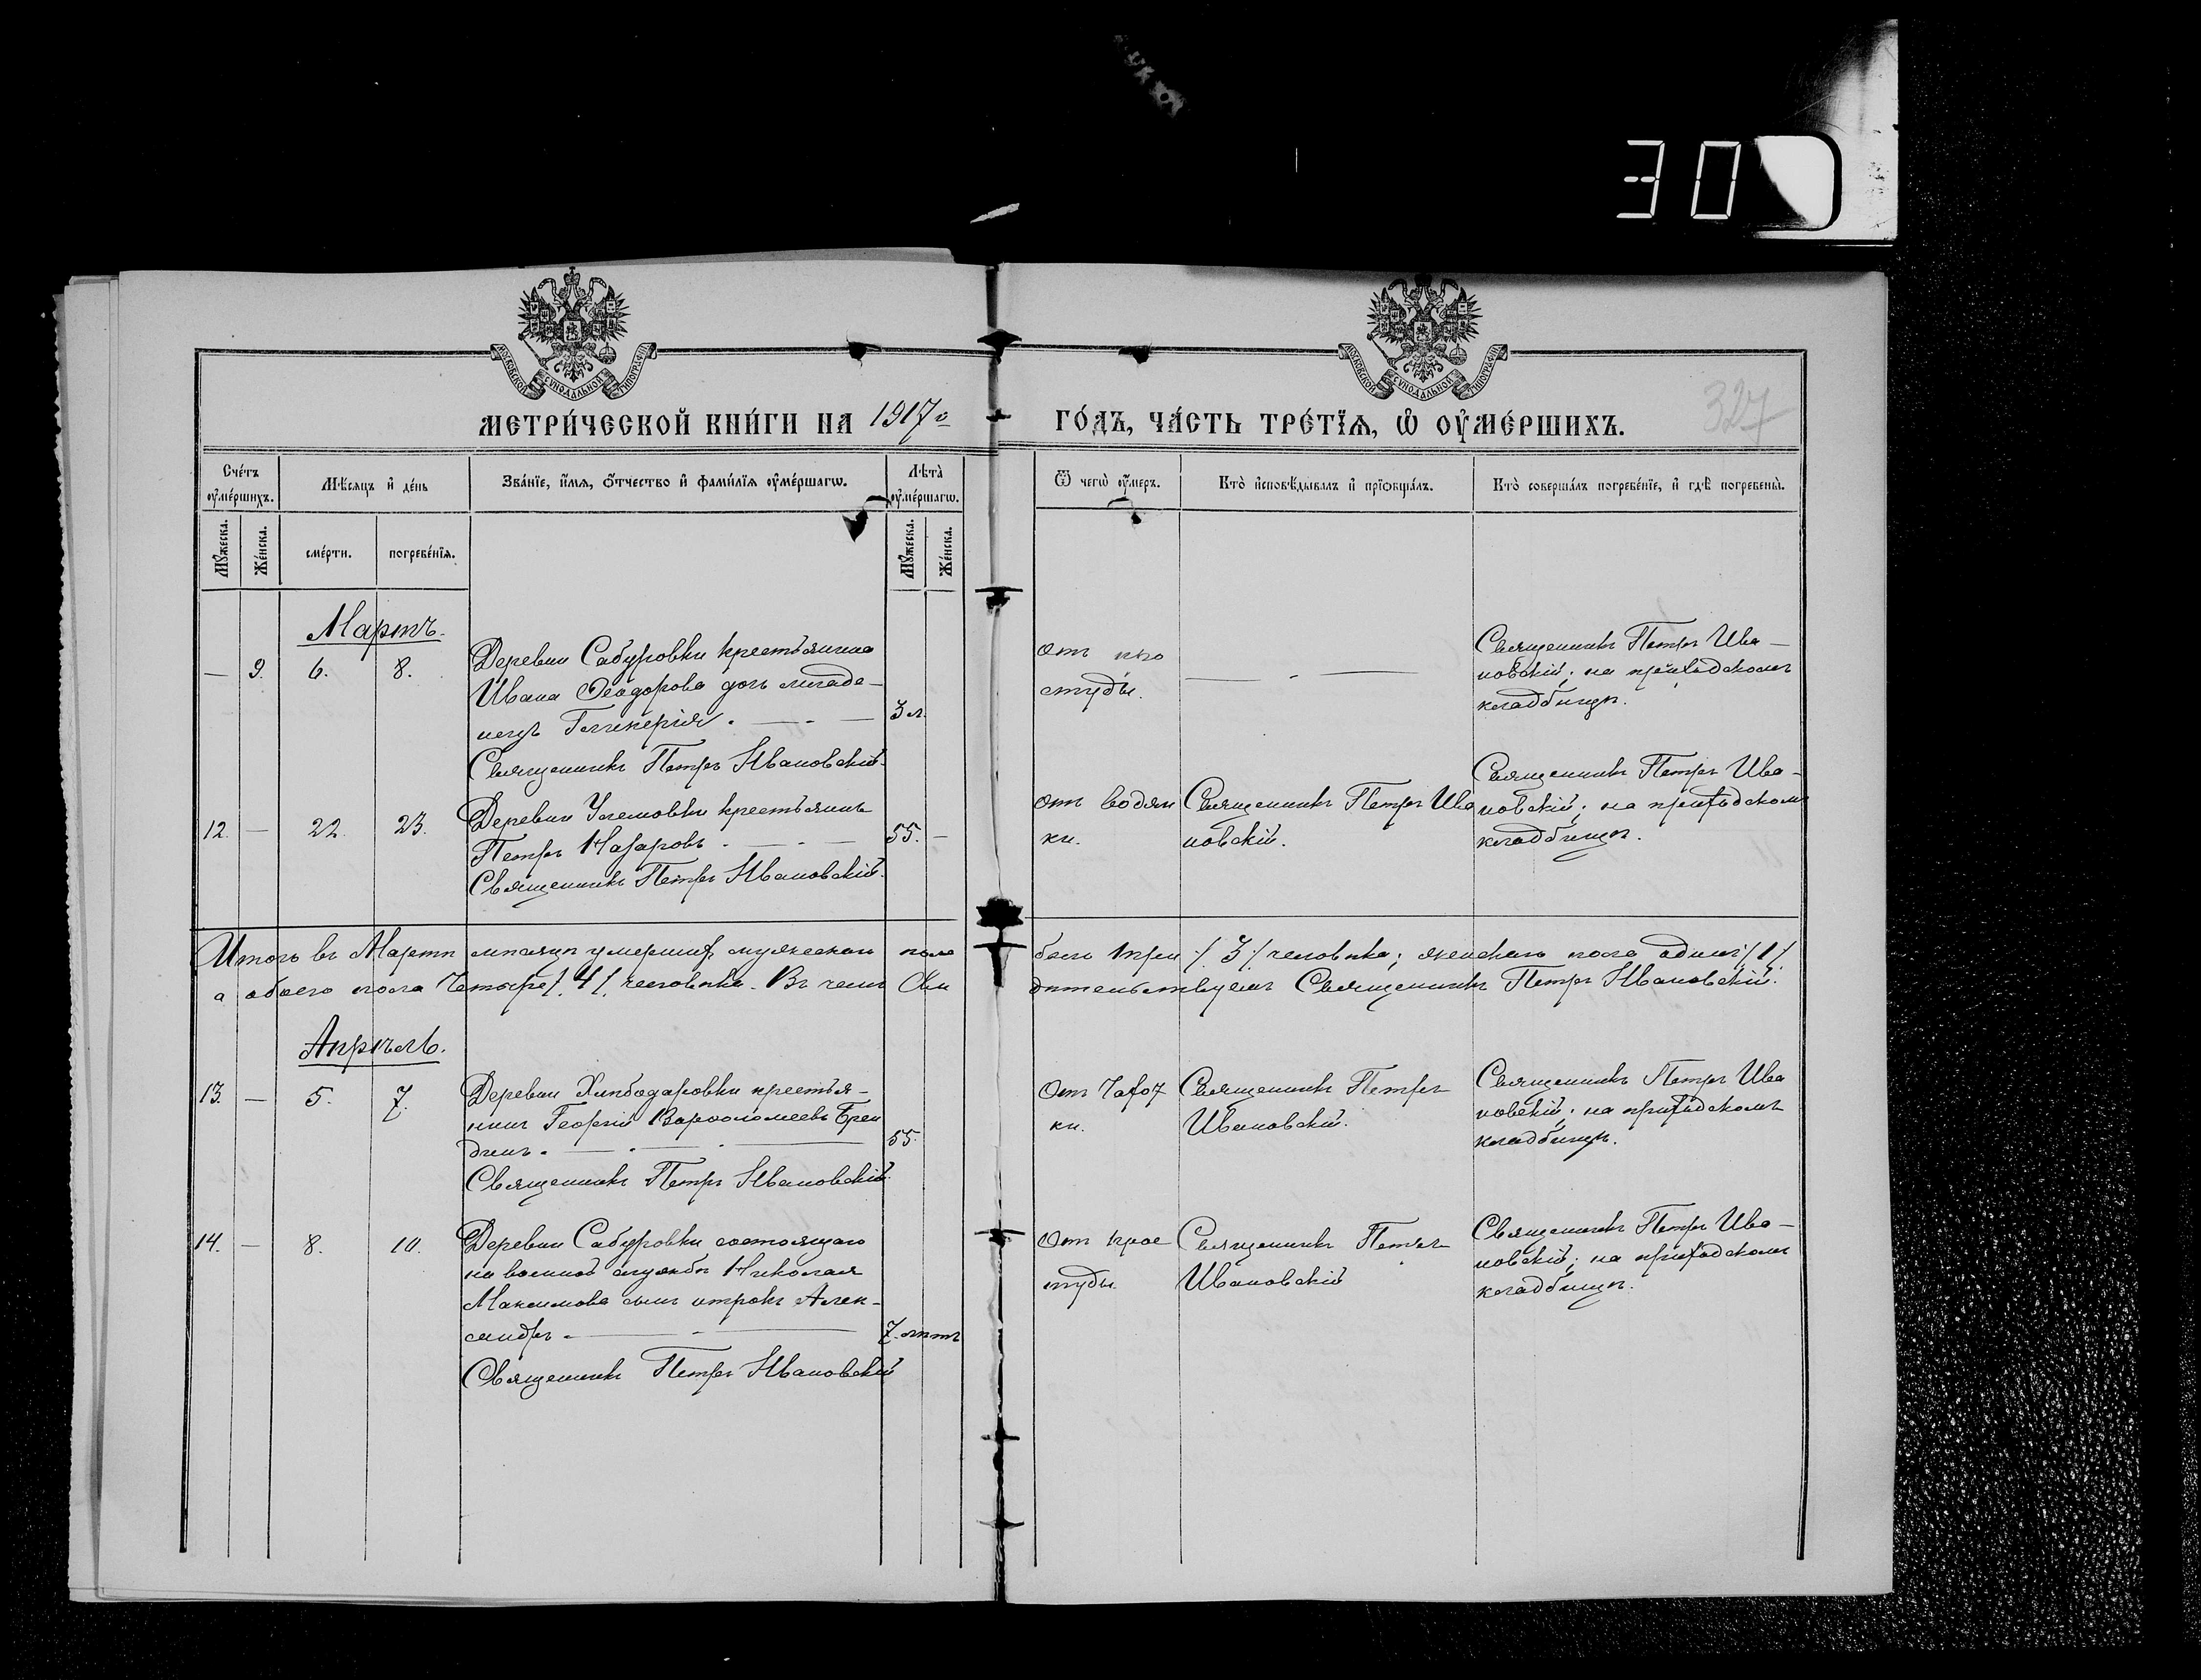 30
МОСКОВСКОЙ СУНОДАЛЬНОЙ ТИПОГРАФІИ
МОСКОВСКОЙ СУНОДАЛЬНОЙ ТИПОГРАФІИ
МЕТРИ́ЧЕСКОЙ КНИ́ГИ НА 1917 о
ГО́ДЪ, ЧА́СТЬ ТРЕ́ТЇѦ, Ѡ҆ ОУ҆МЕ́РШИХЪ.
327
Сче́тъ оу҆ме́ршихъ.
Мѣ́сѧцъ и҆ де́нь
Зва́нїе, и҆́мѧ, ѻ҆́тчество и҆ фами́лїѧ оу҆ме́ршагѡ.
Лѣ́та оу҆ме́ршагѡ.
Ѿ чегѡ̀ оу҆́меръ.
Кто̀ и҆сповѣ́дывалъ и҆ прїѡбща́лъ.
Кто̀ соверша́лъ погребе́нїе, и҆ гдѣ̀ погребены̀.
Мꙋ́жеска.
Же́нска.
сме́рти.
погребе́нїѧ.
Мꙋ́жеска.
Же́нска.
Мартъ.
— 9. 6. 8.
Деревни Сабуровки крестьянина
Ивана Ѳеодорова дочь младе-
нецъ Гликерія. —
3 л.
Священникъ Петръ Ивановскій.
Отъ про
студы.
— . —
Священникъ Петръ Ива-
новскій; на приходскомъ
кладбищѣ.
12. — 22. 23.
Деревни Улемовки крестьянинъ
Петръ Назаровъ. —
55. —
Священникъ Петръ Ивановскій.
Отъ водян
ки.
Священникъ Петръ Ива
новскій.
Священникъ Петръ Ива-
новскій; на приходскомъ
кладбищѣ.
Итого въ Мартѣ мѣсяцѣ умершихъ мужескаго пола было три /.3/. человѣка; женскаго пола одинъ /.1/.
а обоего пола Четыре /.4/. человѣка. Въ чемъ Сви дѣтельствуемъ Священникъ Петръ Ивановскій.
Апрѣль.
13. — 5. 7.
Деревни Хлѣбодаровки крестья-
нинъ Георгій Варѳоломеевъ
55.
Священникъ Петръ Ивановскій.
Отъ Чахот
ки.
Священникъ Петръ
Ивановскій.
Священникъ Петръ Ива
новскій; на приходскомъ
кладбищѣ.
14. — 8. 10.
Деревни Сабуровки состоящаго
на военной службѣ Николая
Максимова сынъ отрокъ Алек-
сандръ. —
7 лѣтъ
Священникъ Петръ Ивановскій
Отъ прос
туды.
Священникъ Петръ
Ивановскій
Священникъ Петръ Ива-
новскій; на приходскомъ
кладбищѣ.